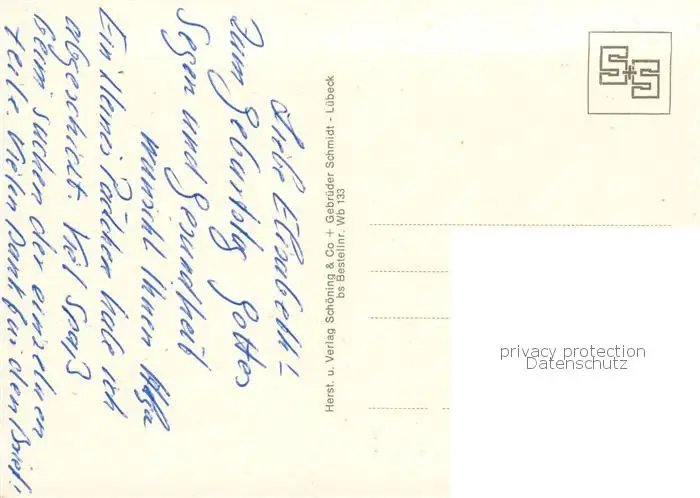 Liebe Elisabeth!
Zum Geburtstg Gottes
Segen und Gesundheit
wünscht Ihnen
Ein kleines Päckchen habe ich
abgeschickt. Viel Spaß
beim suchen der einzelnen
teile. Vielen Dank für den Brief!
Herst. u. Verlag Schöning & Co + Gebrüder Schmidt - Lübeck
bs Bestellnr. Wb 133
S+S
privacy protection
Datenschutz